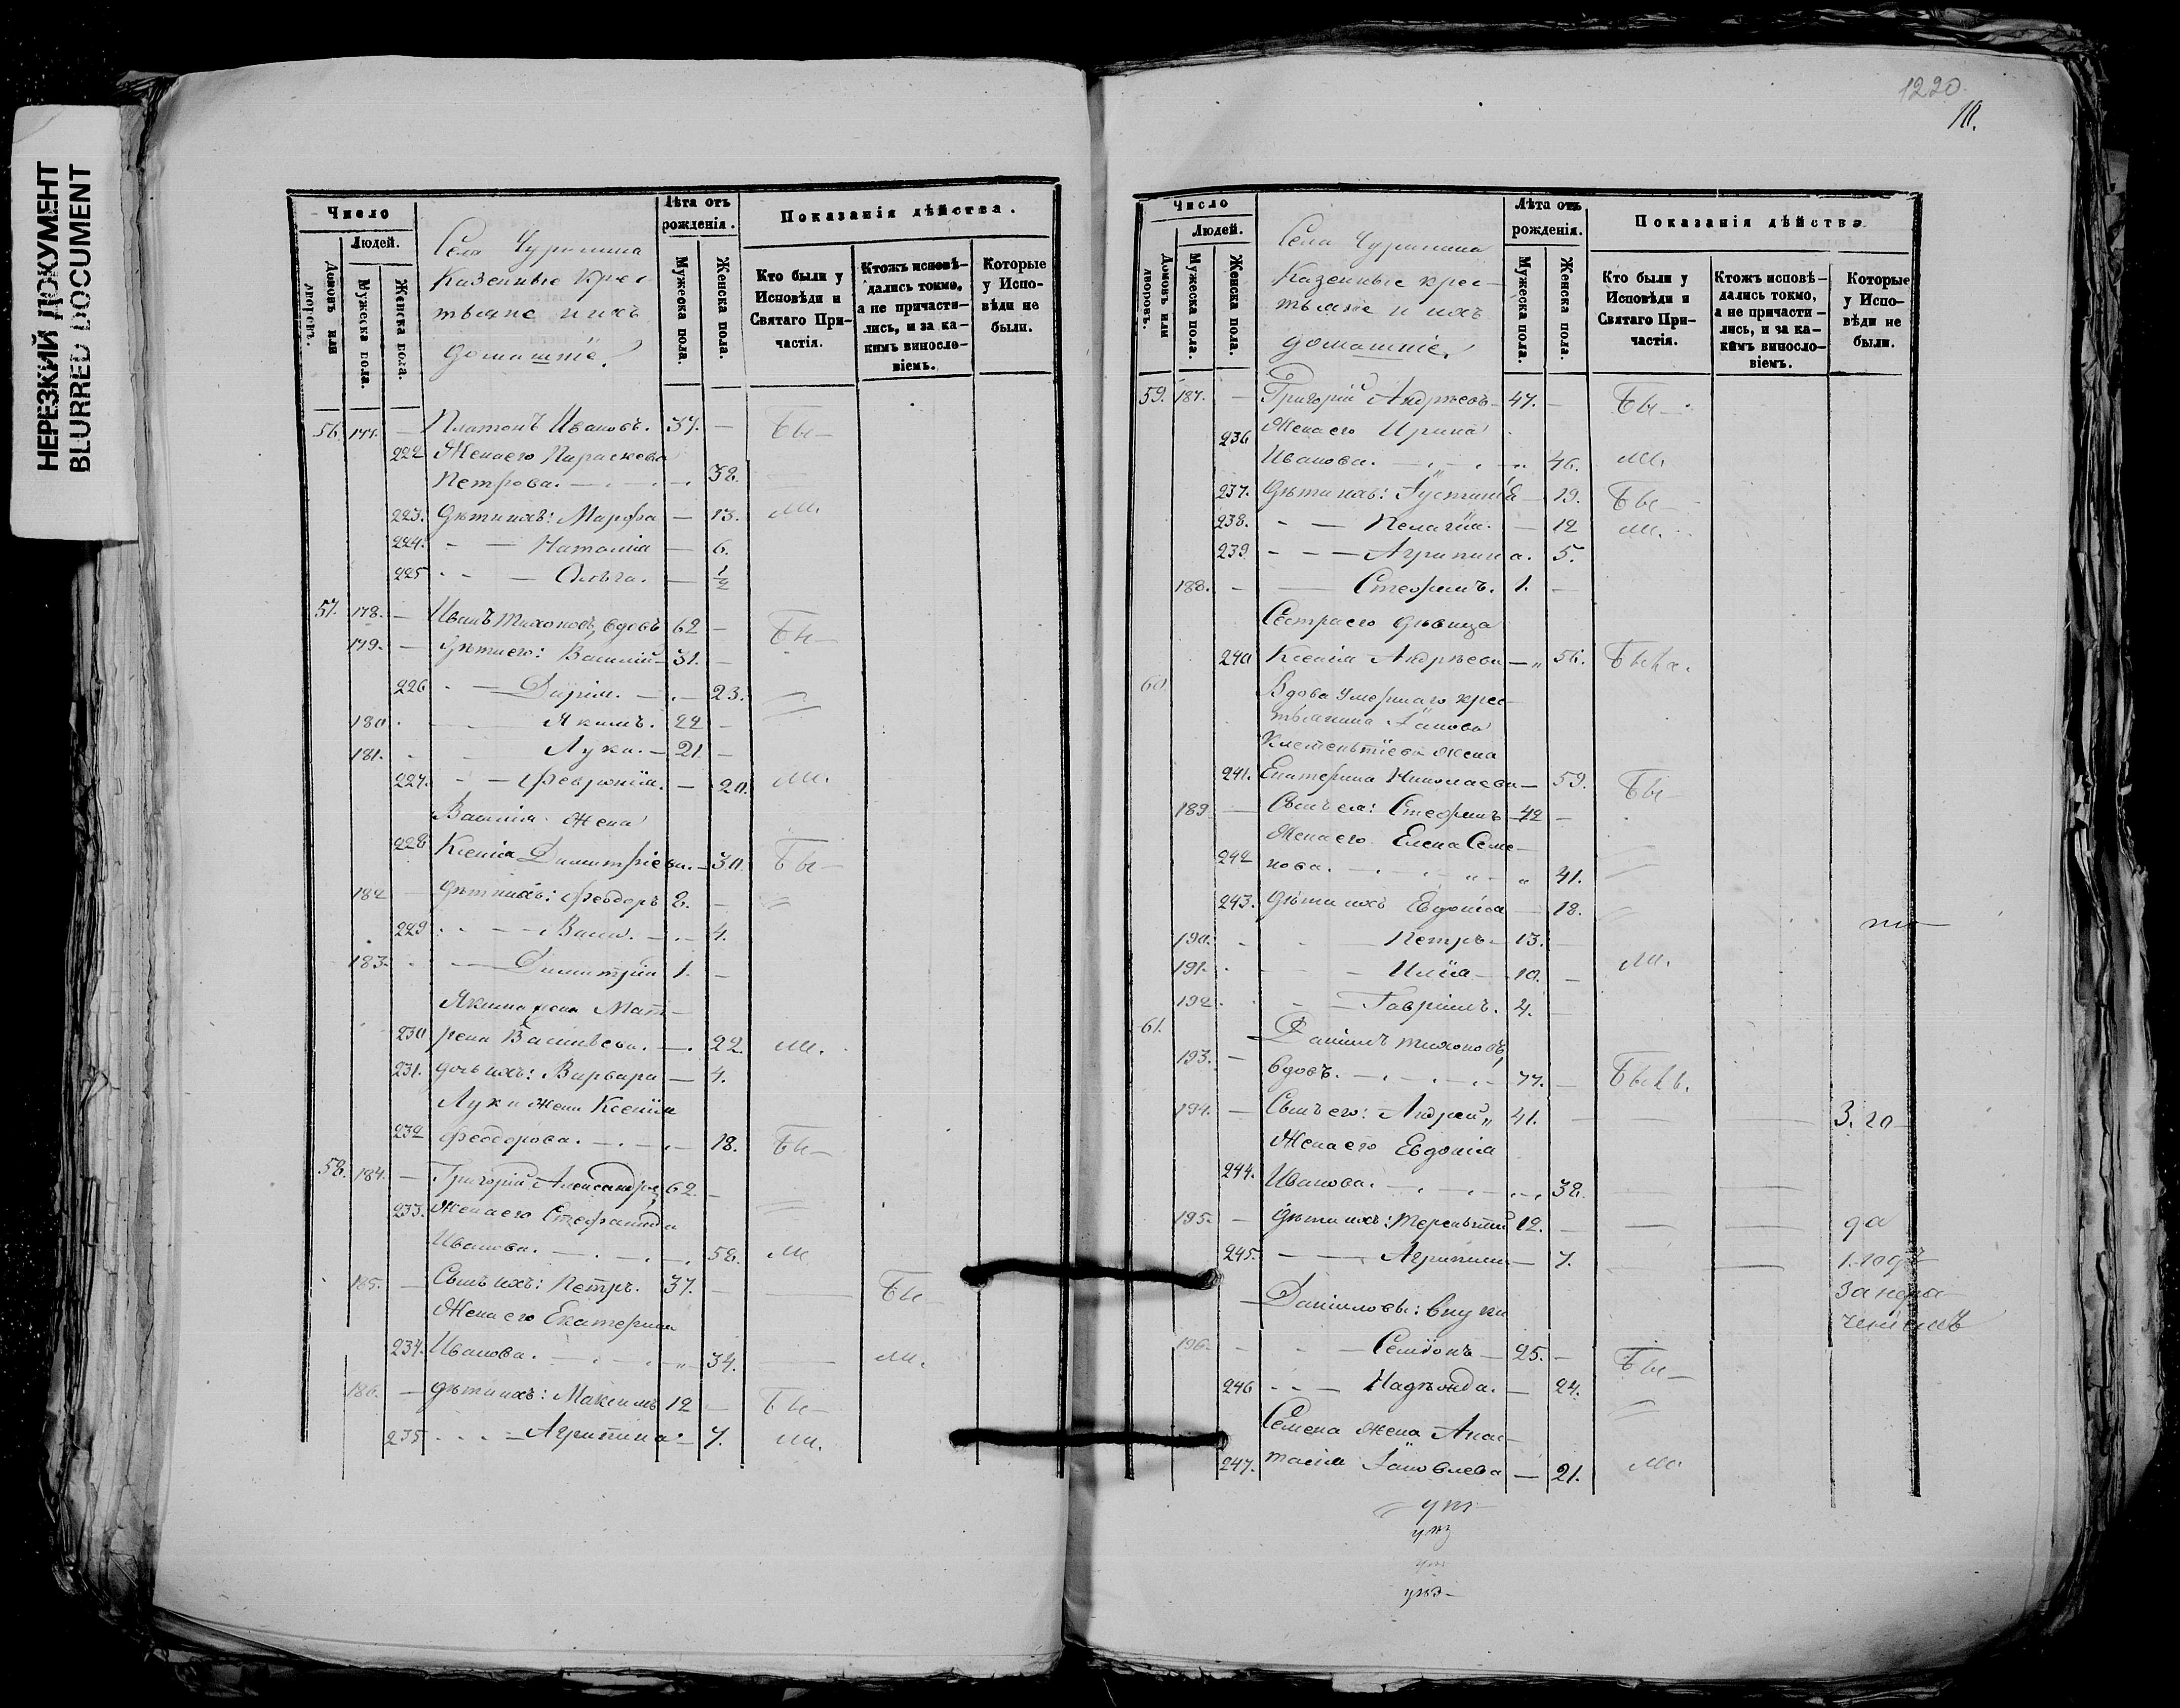 НЕРЕЗКИЙ ДОКУМЕНТ
BLURRED DOCUMENT
Число
Людей.
Домовъ или дворовъ.
Мужеска пола.
Женска пола.
Села Чурилина
Казенные крес-
тьяне и ихъ
домашніе.
Лѣта отъ рожденія.
Мужеска пола.
Женска пола.
Показанія дѣйства.
Кто были у Исповѣди и Святаго При-частія.
Ктожъ исповѣ-дались токмо, а не причасти-лись, и за ка-кимъ винословіемъ.
Которые у Испо-вѣди не были.
56. 177. — Платонъ Ивановъ. 37. — Бы-
222 Жена его Параскева
Петрова. — 38.
223. Дѣти ихъ: Марфа — 13. ли.
224. - — Наталія — 6.
225 - - — Ольга. — 1/2
57. 178. — Иванъ Тихоновъ, вдовъ 62 — Бы-
179. — Дѣти его: Василій — 31. —
226 - — Дарія. — 23.
180. Якимъ. 22 —
181. Лука. — 21 —
227. - — Февронія. — 20. ли.
Василія жена
228 Ксенія Димитріева. — 30. Бы-
182 — Дѣти ихъ: Феодоръ 8. —
229 — 4.
183. - — Димитрій 1. —
Якима жена Мат-
230 рена Васильева. — 22. ли.
231. дочь ихъ: Варвара — 4.
Луки жена Ксенія
232 Феодорова. — 18. Бы-
58. 184. — Григорій Александр. 62. —
233. Жена его Стефанида
Иванова. — 58. ли
185. — Сынъ ихъ: Петръ. 37. — — Бы-
Жена его Екатерина
234. Иванова. — 34. — ли.
186. — дѣти ихъ: Максимъ 12 — Бы-
235 - - - — Агрипина — 7. ли.
1220
10.
Число
Людей.
Домовъ или дворовъ.
Мужеска пола.
Женска пола.
Села Чурилина
Казенные крес-
тьяне и ихъ
домашніе.
Лѣта отъ рожденія.
Мужеска пола.
Женска пола.
Показанія дѣйства
Кто были у Исповѣди и Святаго При-частія.
Ктожъ исповѣ-дались токмо, а не причасти-лись, и за ка-кимъ винословіемъ.
Которые у Испо-вѣди не были.
59. 187. — Григорій Андреевъ — 47. — Бы-
236 Жена его Ирина
Иванова. — 46. ли.
237. Дѣти ихъ: Іустинія — 19. Бы-
238. - — Пелагія. — 12 ли.
239 - - — Агрипина. 5.
188. - — Стефанъ. 1. —
Сестра его дѣвица
240 Ксенія Андреева — 56. Была.
60. Вдова умершаго крес-
тьянина Іакова
Клементіева жена
241. Екатерина Николаева — 59. Бы-
189 — Сынъ ея: Стефанъ — 42 —
Жена его Елена Семе-
242 нова. — 41.
243. Дѣти ихъ Евдокія — 18.
190. - - — Петръ — 13. —
191. - - — Илія — 10. — ли.
192 - - — Гавріилъ. 4. —
61. Даніилъ Тихоновъ,
193. — вдовъ. — 77. — Былъ.
194. — Сынъ его: Андрей 41. — — — 3. го
Жена его Евдокія
244. Иванова. — 38. — —
195. — Дѣти ихъ: Терентій 12. — — — да
245. - — Агрипина — 7. — — 1. годъ
Даніиловы: внуки
за нера-
ченіемъ
196. - - — Семіонъ — 25. — Бы-
246 - - — Надежда. — 24.
Семена жена Анас-
247. тасія Іаковлева — 21. ли